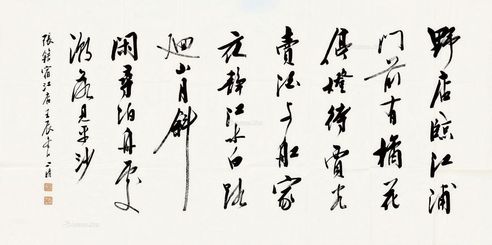 野店臨江浦
門前有橘花
停燈待賈客
賣酒与舡家
夜静江水白路
迴山月斜
閑尋泊舟處
潮落見平沙
張籍宿江店壬辰